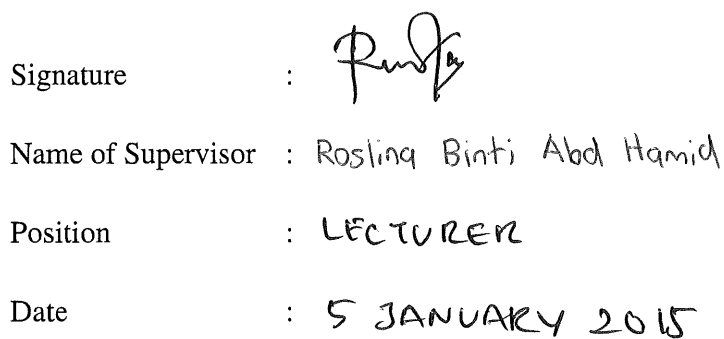 Signature :
Name of Supervisor : Roslina Binti Abd Hamid
Position : LECTURER
Date : 5 JANUARY 2015